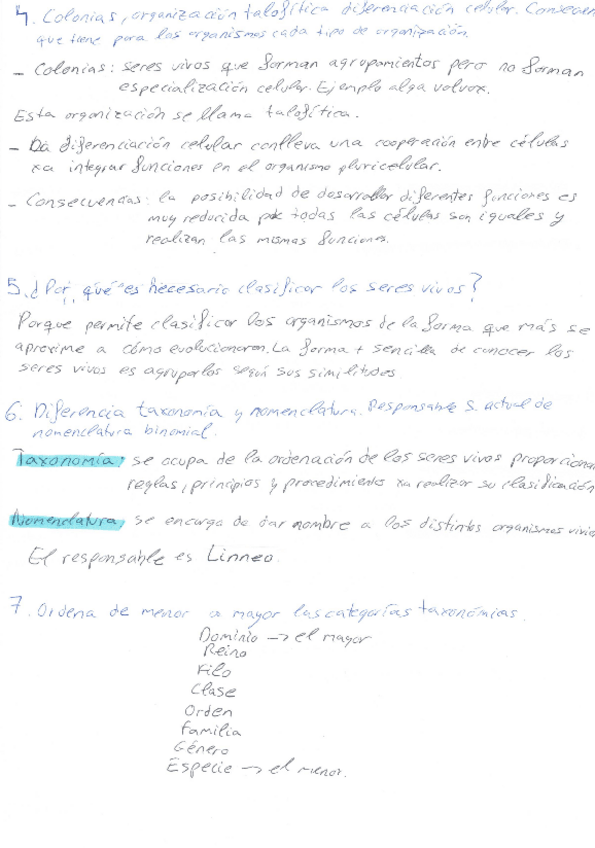 4. Colonias, organización talofítica diferenciación celular. Consecuen
que tiene para los organismos cada tipo de organización.
- Colonias: seres vivos que forman agrupamientos pero no forman
especialización celular. Ejemplo alga volvox.
Esta organización se llama talofítica.
- La diferenciación celular conlleva una cooperación entre células
xa integrar funciones en el organismo pluricelular.
- Consecuencias: la posibilidad de desarrollar diferentes funciones es
muy reducida pk todas las células son iguales y
realizan las mismas funciones.
5. ¿Por qué es necesario clasificar los seres vivos?
Porque permite clasificar los organismos de la forma que más se
aproxime a cómo evolucionaron. La forma + sencilla de conocer los
seres vivos es agruparlos según sus similitudes
6. Diferencia taxonomía y nomenclatura. Responsable S. actual de
nomenclatura binomial.
Taxonomía: se ocupa de la ordenación de los seres vivos proporcionan
reglas, principios y procedimientos xa realizar su clasificación
Nomenclatura: se encarga de dar nombre a los distintos organismos vivos
El responsable es Linneo.
7. Ordena de menor a mayor las categorías taxonómicas.
Dominio → el mayor
Reino
Filo
Clase
Orden
Familia
Género
Especie → el menor.